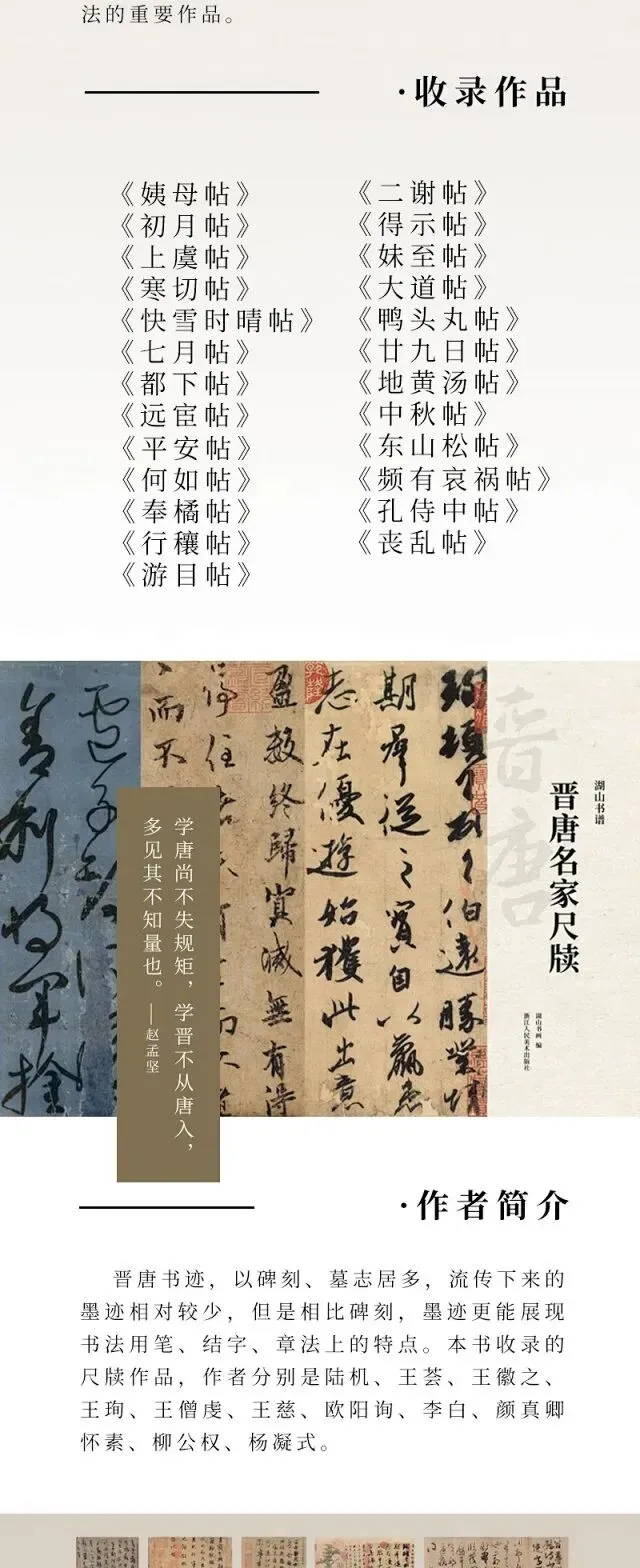 法的重要作品。
·收录作品
《姨母帖》
《初月帖》
《上虞帖》
《寒切帖》
《快雪时晴帖》
《七月帖》
《都下帖》
《远宦帖》
《平安帖》
《何如帖》
《奉橘帖》
《行穰帖》
《游目帖》
《二谢帖》
《得示帖》
《妹至帖》
《大道帖》
《鸭头丸帖》
《廿九日帖》
《地黄汤帖》
《中秋帖》
《东山松帖》
《频有哀祸帖》
《孔侍中帖》
《丧乱帖》
晋唐
湖山书谱
晋唐名家尺牍
湖山书画 编
浙江人民美术出版社
期群从之宝自以羸患
志在優遊始獲此出意
盈数終歸實滅無有得
学唐尚不失规矩，学晋不从唐入，
多见其不知量也。——赵孟坚
·作者简介
晋唐书迹，以碑刻、墓志居多，流传下来的
墨迹相对较少，但是相比碑刻，墨迹更能展现
书法用笔、结字、章法上的特点。本书收录的
尺牍作品，作者分别是陆机、王荟、王徽之、
王珣、王僧虔、王慈、欧阳询、李白、颜真卿
怀素、柳公权、杨凝式。